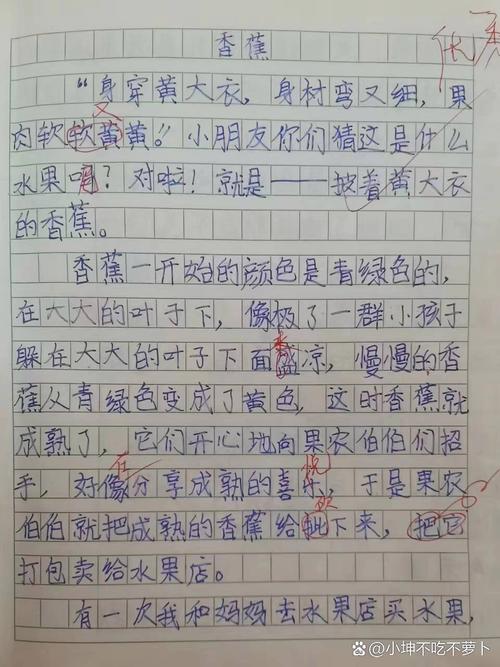 香蕉
优秀
“身穿黄大衣，身材弯又细，果
又
肉软软黄黄!”小朋友你们猜这是什么
水果呢？对啦！就是——披着黄大衣
的香蕉。
香蕉一开始的颜色是青绿色的，
在大大的叶子下，像极了一群小孩子
躲在大大的叶子下面凉，慢慢的香
蕉从青绿色变成了黄色，这时香蕉就
成熟了，它们开心地向果农伯伯们招
在 悦
手，好像分享成熟的喜乐，于是果农
伯伯就把成熟的香蕉给下来，把它
打包卖给水果店。
有一次我和妈妈去水果店买水果，
@小坤不吃不萝卜